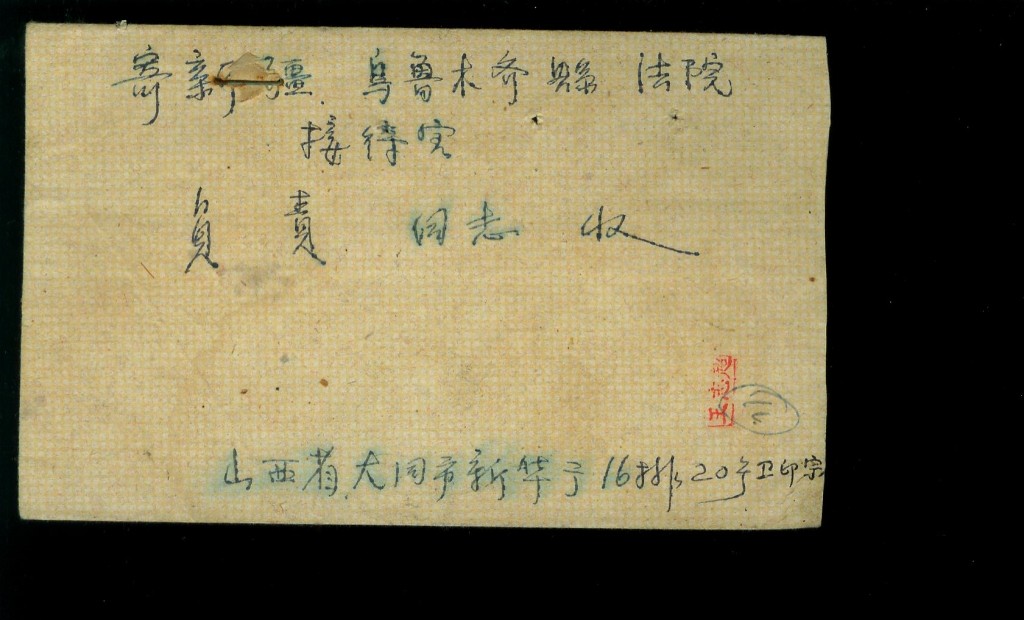 寄新疆 乌鲁木齐縣 法院
接待室
負責 同志 收
山西省大同市新华于16排20号卫印宗